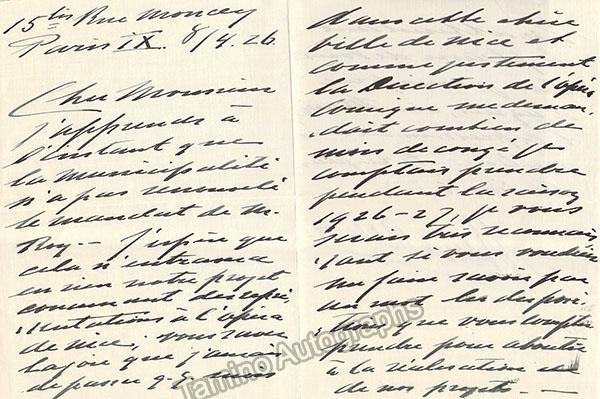 15bis Rue Moncey
Paris IX. 8/4.26.
Cher Monsieur
J'apprends à
l'instant que
la municipalité
n'a pas renouvelé
le mandat de M.
Roy. — J'espère que
cela n'entravera
en rien notre projet
concernant des repré,
sentations à l'opéra
de Nice; vous savez
la joie que j'aurais
de passer q.q. mois
dans cette chère
ville de Nice et
comme justement
la Direction de l'opéra
Comique me deman,
dait combien de
mois de congé je
comptais prendre
pendant la saison
1926-27, je vous
serais très reconnais,
sant si vous vouliez
me faire savoir par
un mot les disposi,
tions que vous comptez
prendre pour aboutir
à la réalisation
de nos projets —
Tamino Autographs